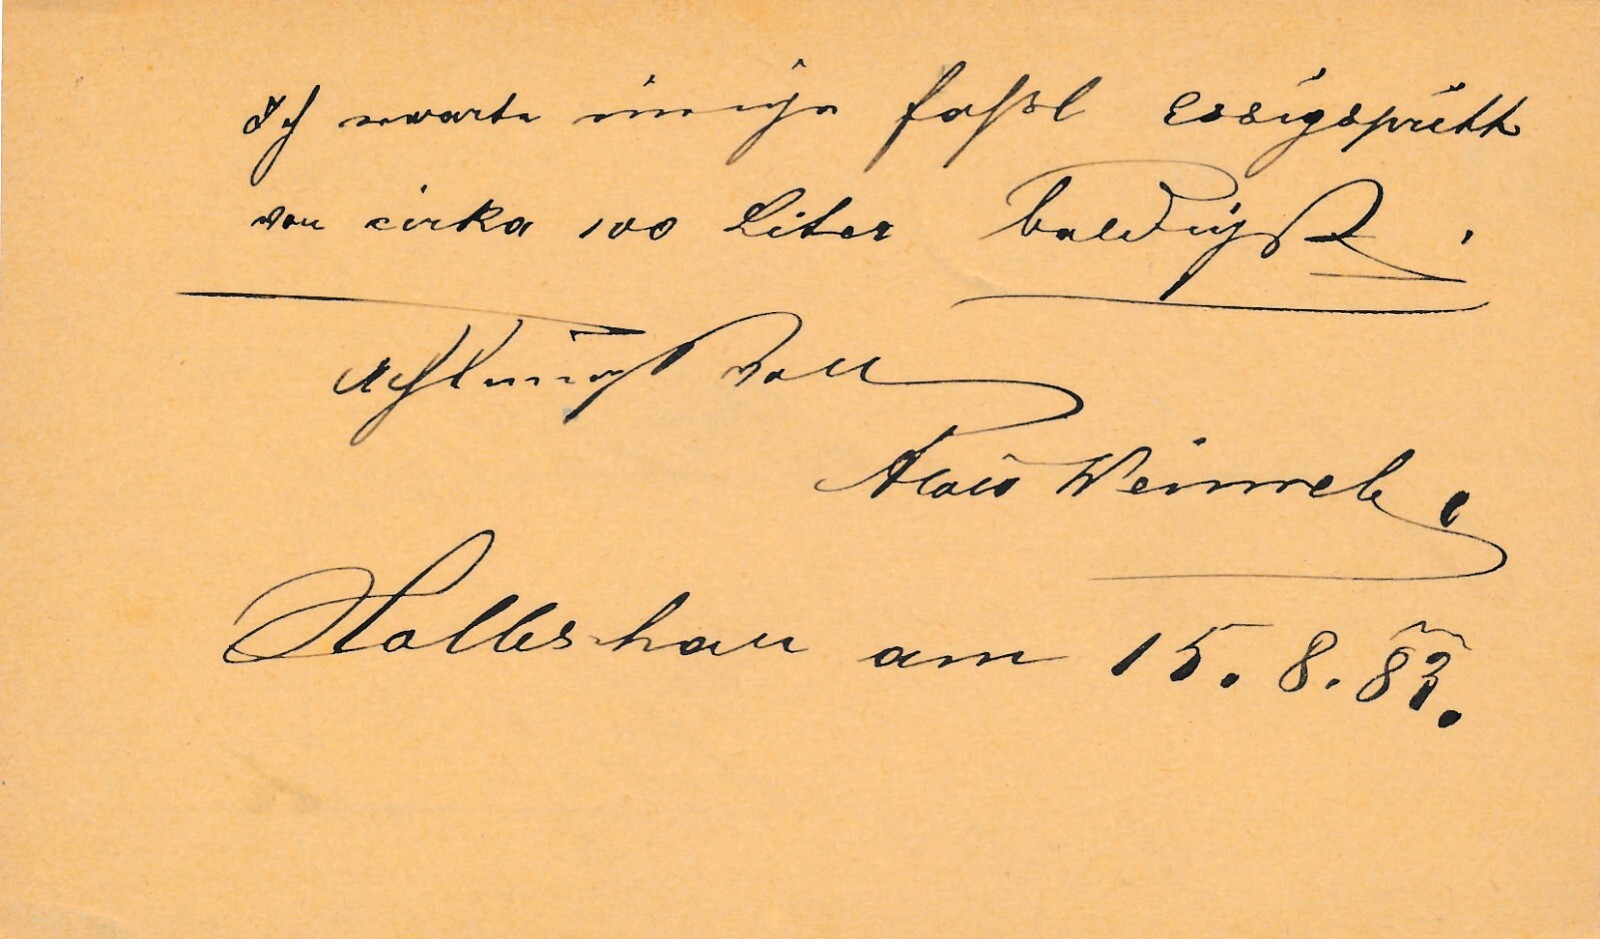 Ich erwarte ein Faßl Essigspritt
von cirka 100 Liter baldigst.
Achtungsvoll
Alois Weinreb
Holleschau am 15.8.83.